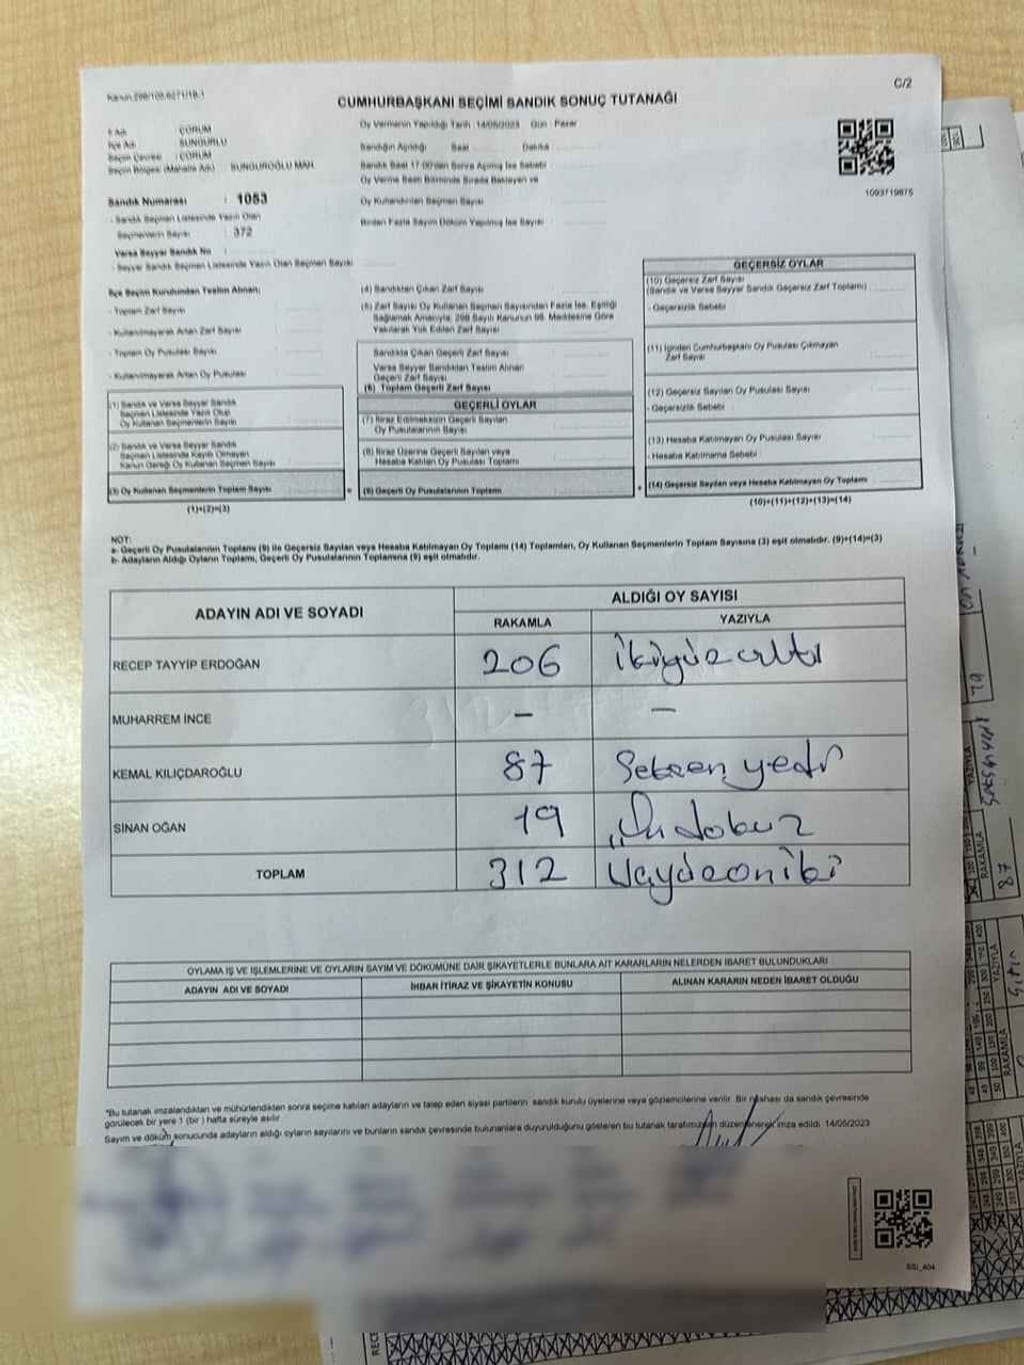 C/2
CUMHURBAŞKANI SEÇİMİ SANDIK SONUÇ TUTANAĞI
İl Adı : ÇORUM
İlçe Adı : SUNGURLU
Seçim Çevresi : ÇORUM
Seçim Bölgesi (Mahalle Adı) : SUNGUROĞLU MAH.
Oy Vermenin Yapıldığı Tarih : 14/05/2023 Gün : Pazar
Sandığın Açıldığı Saat Dakika
Sandık Saat 17:00'den Sonra Açılmış İse Sebebi
Oy Verme Saati Bitiminde Sırada Bekleyen ve
Oy Kullandırılan Seçmen Sayısı
Birden Fazla Sayım Döküm Yapılmış İse Sayısı
1093719875
Sandık Numarası : 1053
- Sandık Seçmen Listesinde Yazılı Olan
Seçmenlerin Sayısı : 372
Varsa Seyyar Sandık No :
- Seyyar Sandık Seçmen Listesinde Yazılı Olan Seçmen Sayısı
İlçe Seçim Kurulundan Teslim Alınan;
- Toplam Zarf Sayısı
- Kullanılmayarak Artan Zarf Sayısı
- Toplam Oy Pusulası Sayısı
- Kullanılmayarak Artan Oy Pusulası
(1) Sandık ve Varsa Seyyar Sandık
Seçmen Listesinde Yazılı Olup
Oy Kullanan Seçmenlerin Sayısı
(2) Sandık ve Varsa Seyyar Sandık
Seçmen Listesinde Kayıtlı Olmayan
Kanun Gereği Oy Kullanan Seçmen Sayısı
(3) Oy Kullanan Seçmenlerin Toplam Sayısı
(1)+(2)=(3)
(4) Sandıktan Çıkan Zarf Sayısı
(5) Zarf Sayısı Oy Kullanan Seçmen Sayısından Fazla İse, Eşitliği
Sağlamak Amacıyla, 298 Sayılı Kanunun 98. Maddesine Göre
Yakılarak Yok Edilen Zarf Sayısı
Sandıkta Çıkan Geçerli Zarf Sayısı
Varsa Seyyar Sandıktan Teslim Alınan
Geçerli Zarf Sayısı
(6) Toplam Geçerli Zarf Sayısı
GEÇERLİ OYLAR
(7) İtiraz Edilmeksizin Geçerli Sayılan
Oy Pusulalarının Sayısı
(8) İtiraz Üzerine Geçerli Sayılan veya
Hesaba Katılan Oy Pusulası Toplamı
+ (9) Geçerli Oy Pusulalarının Toplamı
GEÇERSİZ OYLAR
(10) Geçersiz Zarf Sayısı
(Sandık ve Varsa Seyyar Sandık Geçersiz Zarf Toplamı)
- Geçersizlik Sebebi
(11) İçinden Cumhurbaşkanı Oy Pusulası Çıkmayan
Zarf Sayısı
(12) Geçersiz Sayılan Oy Pusulası Sayısı
- Geçersizlik Sebebi
(13) Hesaba Katılmayan Oy Pusulası Sayısı
- Hesaba Katılmama Sebebi
+ (14) Geçersiz Sayılan veya Hesaba Katılmayan Oy Toplamı
(10)+(11)+(12)+(13)=(14)
NOT:
a- Geçerli Oy Pusulalarının Toplamı (9) ile Geçersiz Sayılan veya Hesaba Katılmayan Oy Toplamı (14) Toplamları, Oy Kullanan Seçmenlerin Toplam Sayısına (3) eşit olmalıdır. (9)+(14)=(3)
b- Adayların Aldığı Oyların Toplamı, Geçerli Oy Pusulalarının Toplamına (9) eşit olmalıdır.
ADAYIN ADI VE SOYADI
ALDIĞI OY SAYISI
RAKAMLA YAZIYLA
RECEP TAYYİP ERDOĞAN 206 ikiyüzaltı
MUHARREM İNCE – –
KEMAL KILIÇDAROĞLU 87 Seksen yedi
SİNAN OĞAN 19 On dokuz
TOPLAM 312
OYLAMA İŞ VE İŞLEMLERİNE VE OYLARIN SAYIM VE DÖKÜMÜNE DAİR ŞİKAYETLERLE BUNLARA AİT KARARLARIN NELERDEN İBARET BULUNDUKLARI
ADAYIN ADI VE SOYADI İHBAR İTİRAZ VE ŞİKAYETİN KONUSU ALINAN KARARIN NEDEN İBARET OLDUĞU
*Bu tutanak imzalandıktan ve mühürlendikten sonra seçime katılan adayların ve talep eden siyasi partilerin sandık kurulu üyelerine veya gözlemcilerine verilir. Bir nüshası da sandık çevresinde
görülecek bir yere 1 (bir) hafta süreyle asılır.
Sayım ve döküm sonucunda adayların aldığı oyların sayılarını ve bunların sandık çevresinde bulunanlara duyurulduğunu gösteren bu tutanak tarafımızdan düzenlenerek imza edildi. 14/05/2023
RAKAMLA
YAZIYLA
87
79
RAKAMLA
YAZIYLA